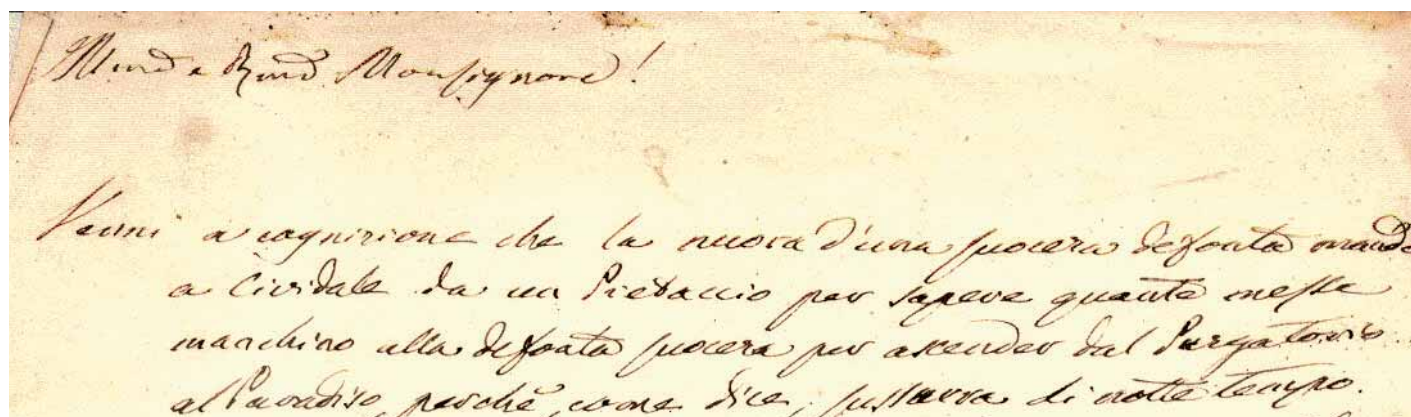 Illmo e Rmo Monsignore!
Venni a cognizione che la nuora d'una suocera defonta mandò
a Cividale da un Pretaccio per sapere quante messe
manchino alla defonta suocera per ascender dal Purgatorio
al Paradiso, perchè, come dice, sussurra di notte tempo.